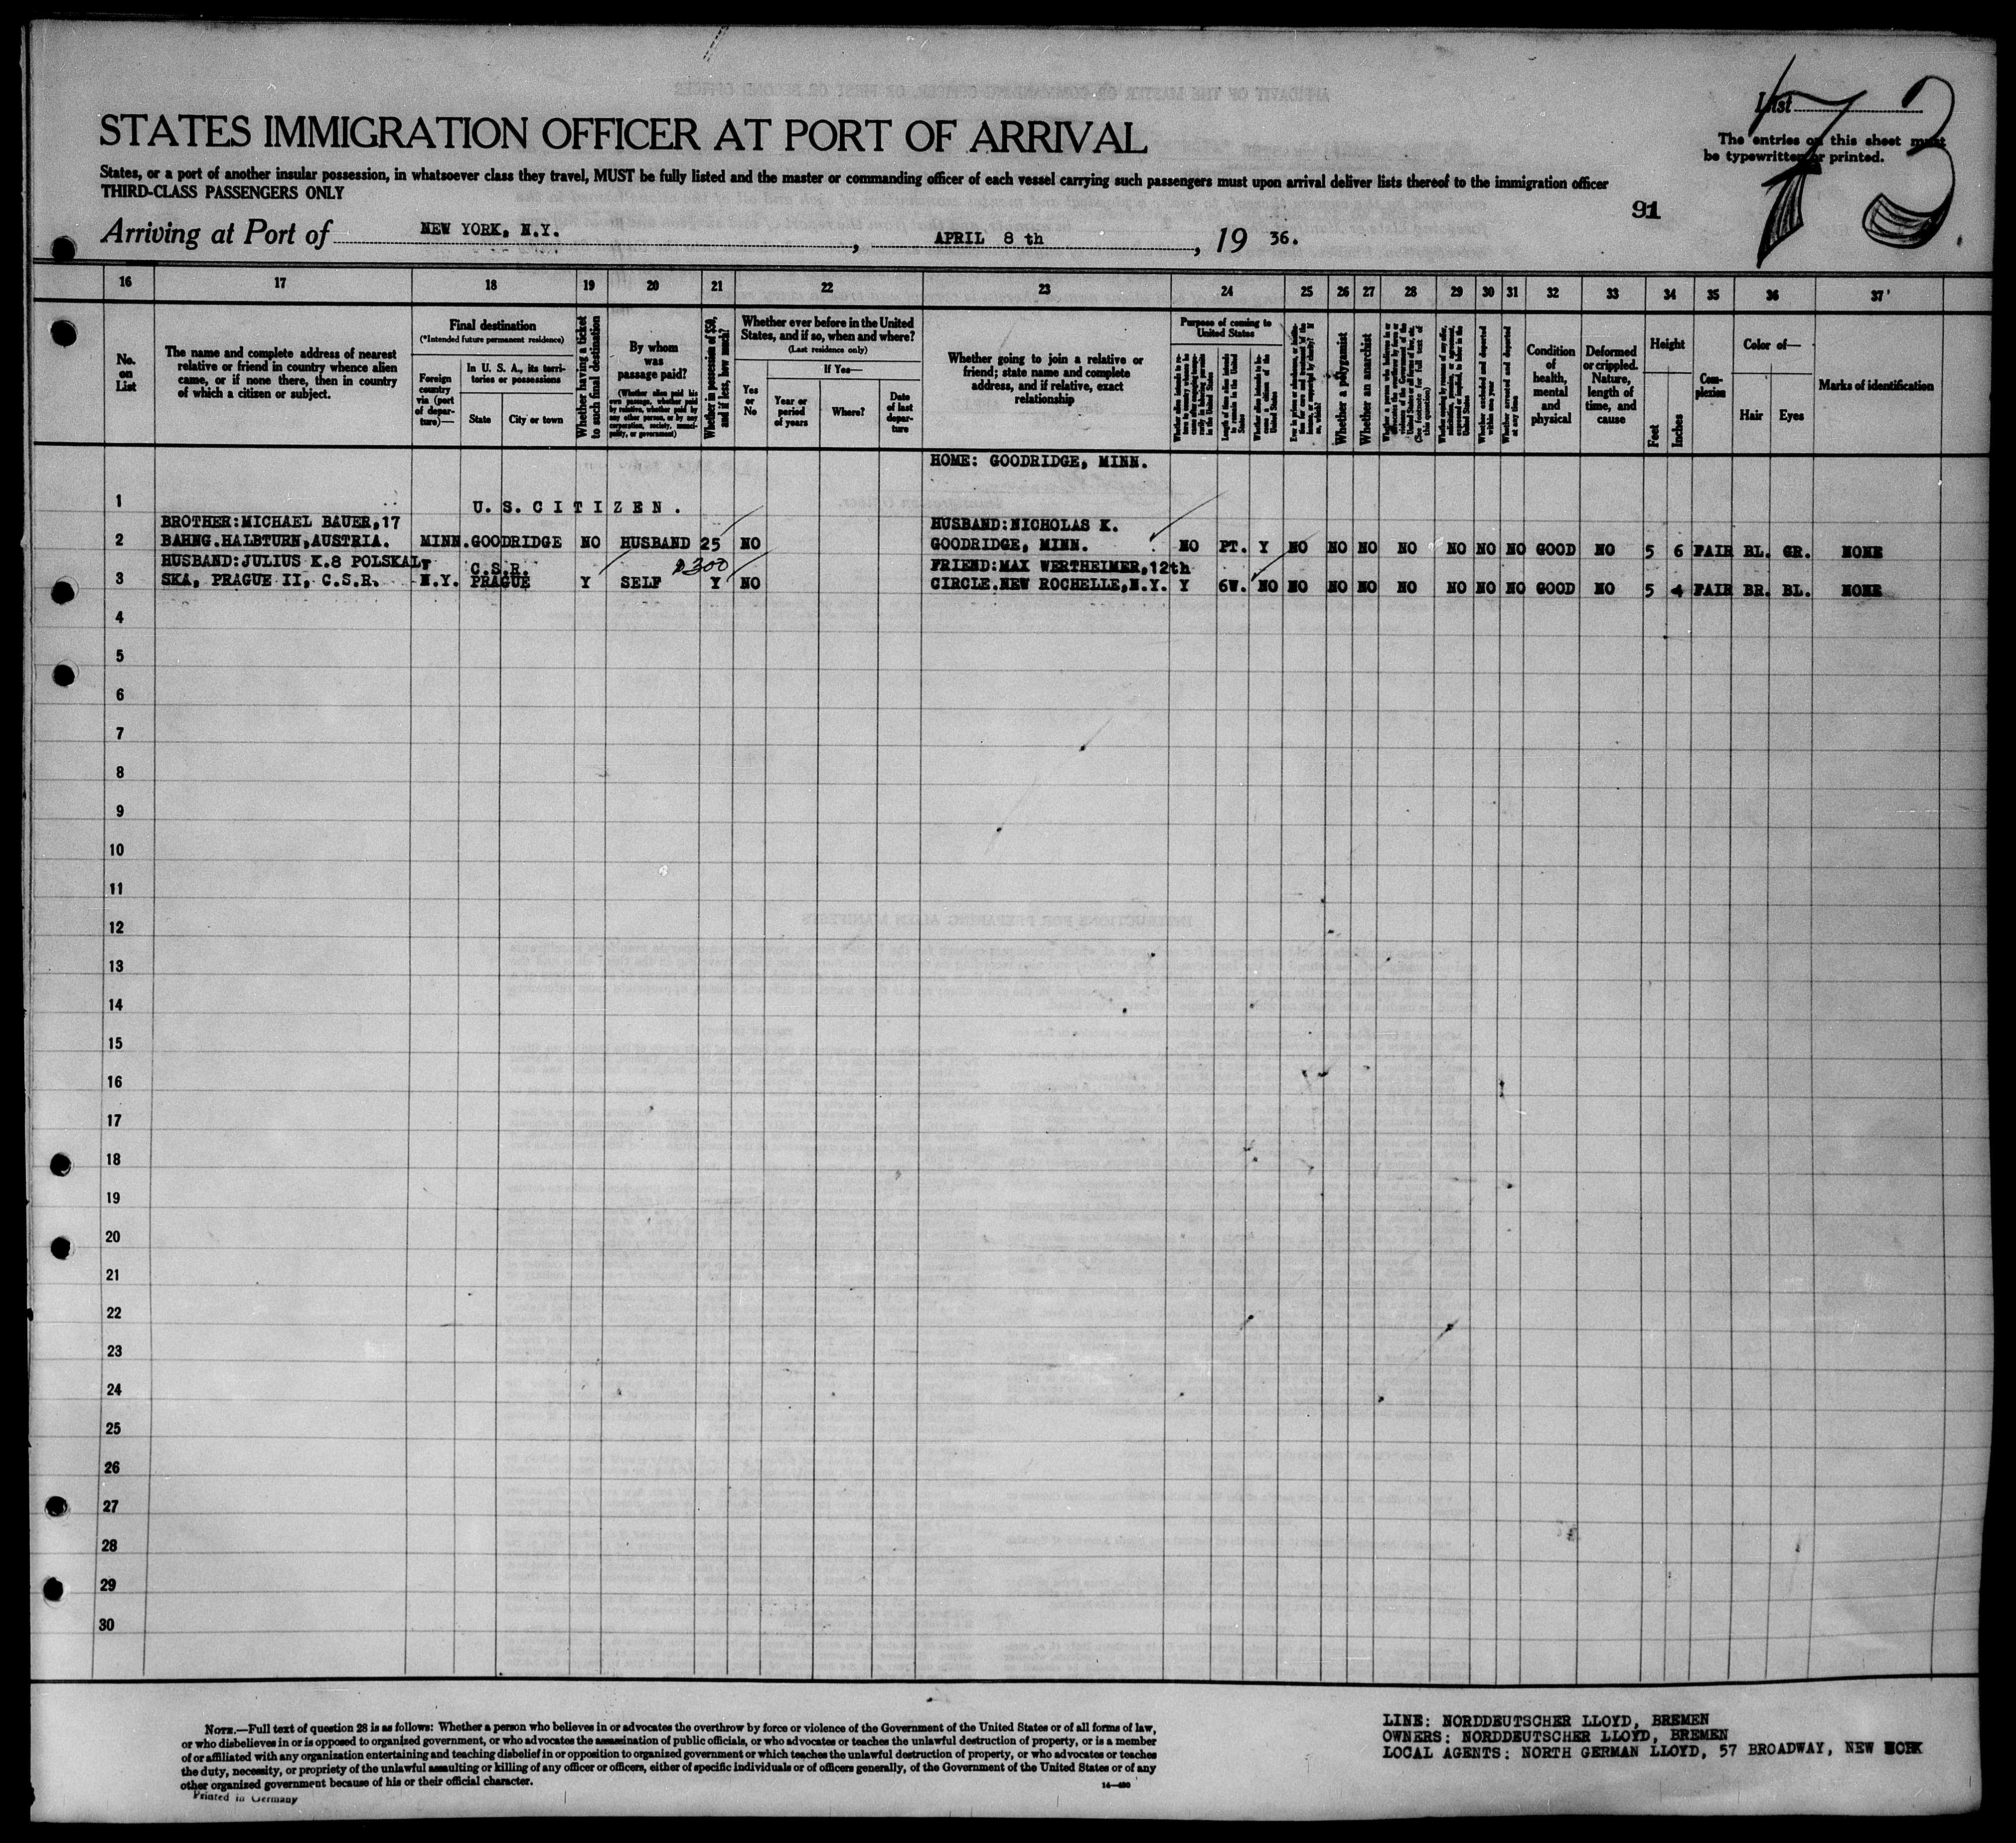 List
73
STATES IMMIGRATION OFFICER AT PORT OF ARRIVAL
The entries on this sheet must
be typewritten or printed.
States, or a port of another insular possession, in whatsoever class they travel, MUST be fully listed and the master or commanding officer of each vessel carrying such passengers must upon arrival deliver lists thereof to the immigration officer
THIRD-CLASS PASSENGERS ONLY
91
Arriving at Port of NEW YORK, N.Y. , APRIL 8 th , 19 36.
16 17 18 19 20 21 22 23 24 25 26 27 28 29 30 31 32 33 34 35 36 37
No. on List
The name and complete address of nearest relative or friend in country whence alien came, or if none there, then in country of which a citizen or subject.
Final destination
(*Intended future permanent residence)
Foreign country via (port of departure)—
In U. S. A., its territories or possessions
State
City or town
Whether having a ticket to such final destination
By whom was passage paid?
(Whether alien paid his own passage, whether paid by relative, whether paid by any other person, or by any corporation, society, municipality, or government)
Whether in possession of $50, and if less, how much?
Whether ever before in the United States, and if so, when and where?
(Last residence only)
Yes or No
If Yes—
Year or period of years
Where?
Date of last departure
Whether going to join a relative or friend; state name and complete address, and if relative, exact relationship
Purpose of coming to United States
Length of time alien intends to remain in the United States
Whether alien intends to become a citizen of the United States
Whether a polygamist
Whether an anarchist
Whether excluded and deported within one year
Whether arrested and deported at any time
Condition of health, mental and physical
Deformed or crippled. Nature, length of time, and cause
Height
Feet
Inches
Complexion
Color of—
Hair
Eyes
Marks of identification
HOME: GOODRIDGE, MINN.
1 U. S. C I T I Z E N .
BROTHER:MICHAEL BAUER,17 HUSBAND:NICHOLAS K.
2 BAHNG.HALBTURN,AUSTRIA. MINN.GOODRIDGE NO HUSBAND 25 NO GOODRIDGE, MINN. NO PT. Y NO NO NO NO NO NO NO GOOD NO 5 6 FAIR BL. GR. NONE
HUSBAND:JULIUS K.8 POLSKAL, C.S.R. 2300 FRIEND:MAX WERTHEIMER,12th
3 SKA, PRAGUE II, C.S.R. N.Y. PRAGUE Y SELF Y NO CIRCLE.NEW ROCHELLE,N.Y. Y 6W. NO NO NO NO NO NO NO NO GOOD NO 5 4 FAIR BR. BL. NONE
4
5
6
7
8
9
10
11
12
13
14
15
16
17
18
19
20
21
22
23
24
25
26
27
28
29
30
NOTE.—Full text of question 28 is as follows: Whether a person who believes in or advocates the overthrow by force or violence of the Government of the United States or of all forms of law,
or who disbelieves in or is opposed to organized government, or who advocates the assassination of public officials, or who advocates or teaches the unlawful destruction of property, or is a member
of or affiliated with any organization entertaining and teaching disbelief in or opposition to organized government or which teaches the unlawful destruction of property, or who advocates or teaches
the duty, necessity, or propriety of the unlawful assaulting or killing of any officer or officers, either of specific individuals or of officers generally, of the Government of the United States or of any
other organized government because of his or their official character.
14—480
Printed in Germany
LINE: NORDDEUTSCHER LLOYD, BREMEN
OWNERS: NORDDEUTSCHER LLOYD, BREMEN
LOCAL AGENTS: NORTH GERMAN LLOYD, 57 BROADWAY, NEW YORK